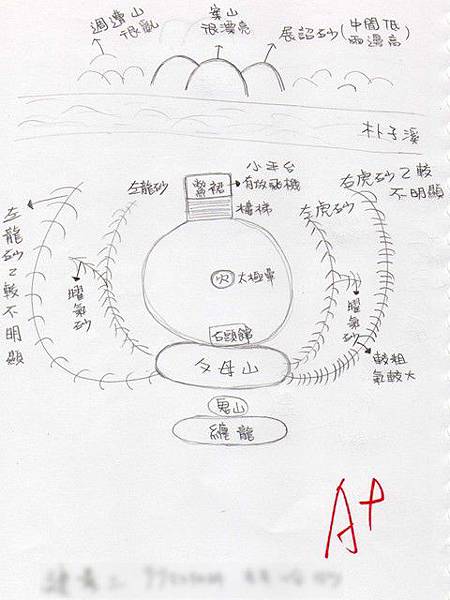 週邊山
很亂
案山
很漂亮
展詔砂(中間低
兩邊高)
朴子溪
左龍砂
鱉裙
小平台
有放飛機
樓梯
左虎砂
右虎砂乙較
不明顯
左龍砂乙較不明顯
曜氣砂
穴
太極暈
曜氣砂
石頭館
父母山
較粗
氣較大
鬼山
纏龍
A+